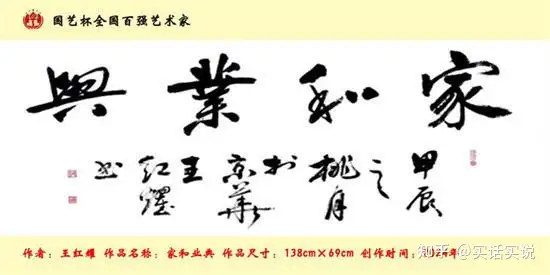 国艺杯全国百强艺术家
家和業興
甲辰之桃月於京華王红耀书
作者：王红耀 作品名称：家和业典 作品尺寸：138cm×69cm 创作时间：2024年
知乎 @实话实说